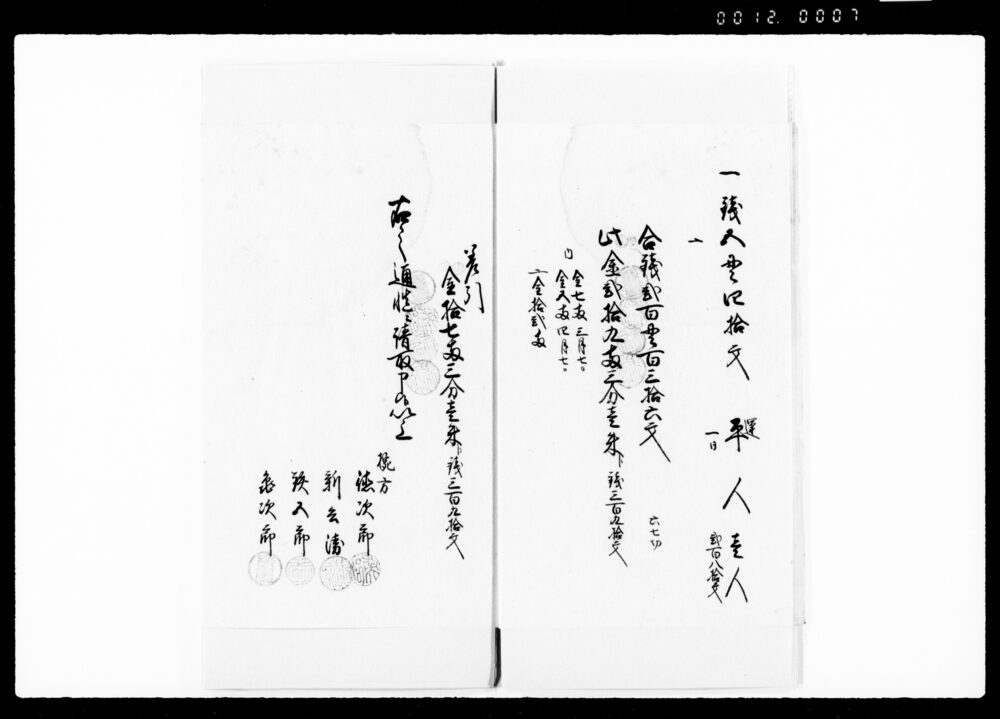 0012. 0007
一 銭五貫四拾文 運平人壱人
一日 弐百八拾文
〆
合銭弐百貫百三拾六文 六七切
此金弐拾九両三分壱朱ト銭三百九拾文
内 金七両 三月七日
金五両 四月七日
〆金拾弐両
差引
金拾七両三分壱朱ト銭三百九拾文
右之通慥ニ請取申候以上
梶方
徳次郎
新兵衛
鉄五郎
亀次郎